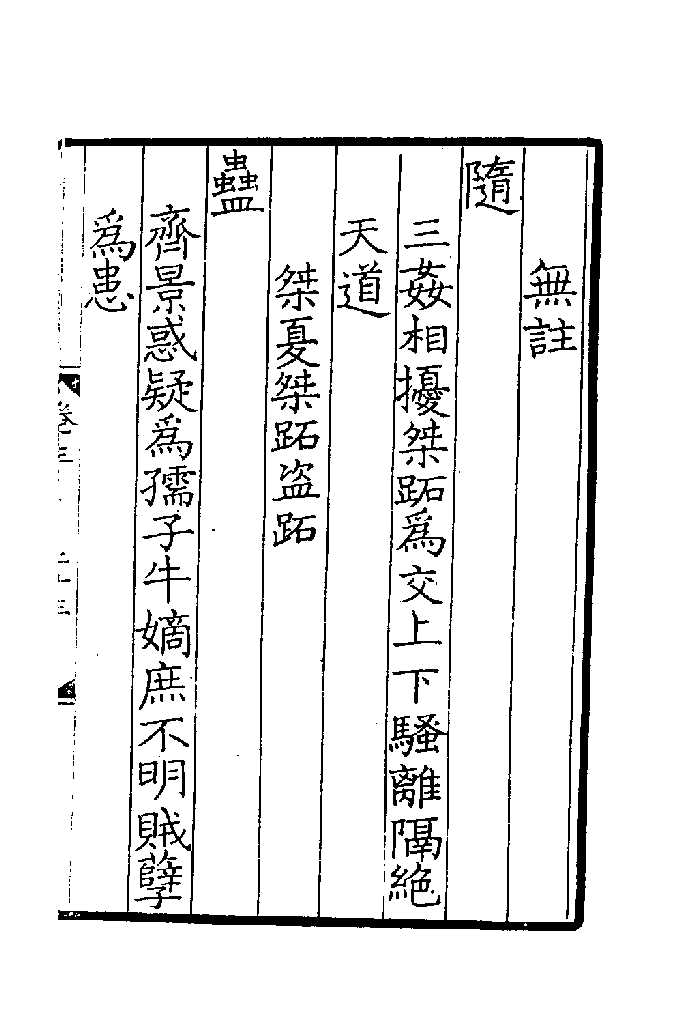 無註
隨
三姦相擾桀跖為交上下騷離隔絶
天道
桀夏桀跖盜跖
蠱
齊景惑疑為孺子牛嫡庶不明賊孽
為患